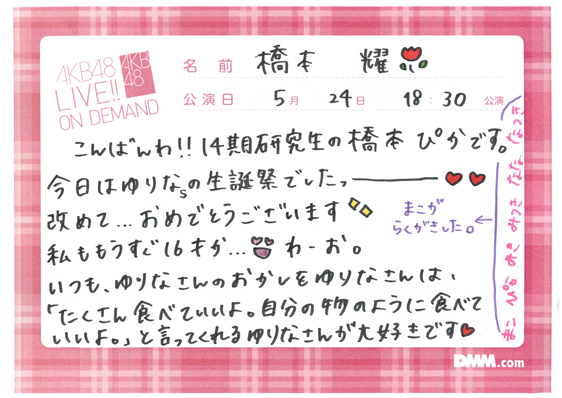 AKB48
LIVE!!
ON DEMAND
AKB
48
名 前 橋本 耀
公演日 5月 24日 18:30 公演
こんばんわ!! 14期研究生の橋本ぴかです。
今日はゆりなsの生誕祭でしたっ———
改めて...おめでとうございます
私ももうすぐ16才か... わーお。
いつも、ゆりなさんのおかしをゆりなさんは、
「たくさん食べていいよ。自分の物のように食べて
いいよ。」と言ってくれるゆりなさんが大好きです
まこが
らくがきした。
まこ ぴな みき みつき なな なつき
DMM.com